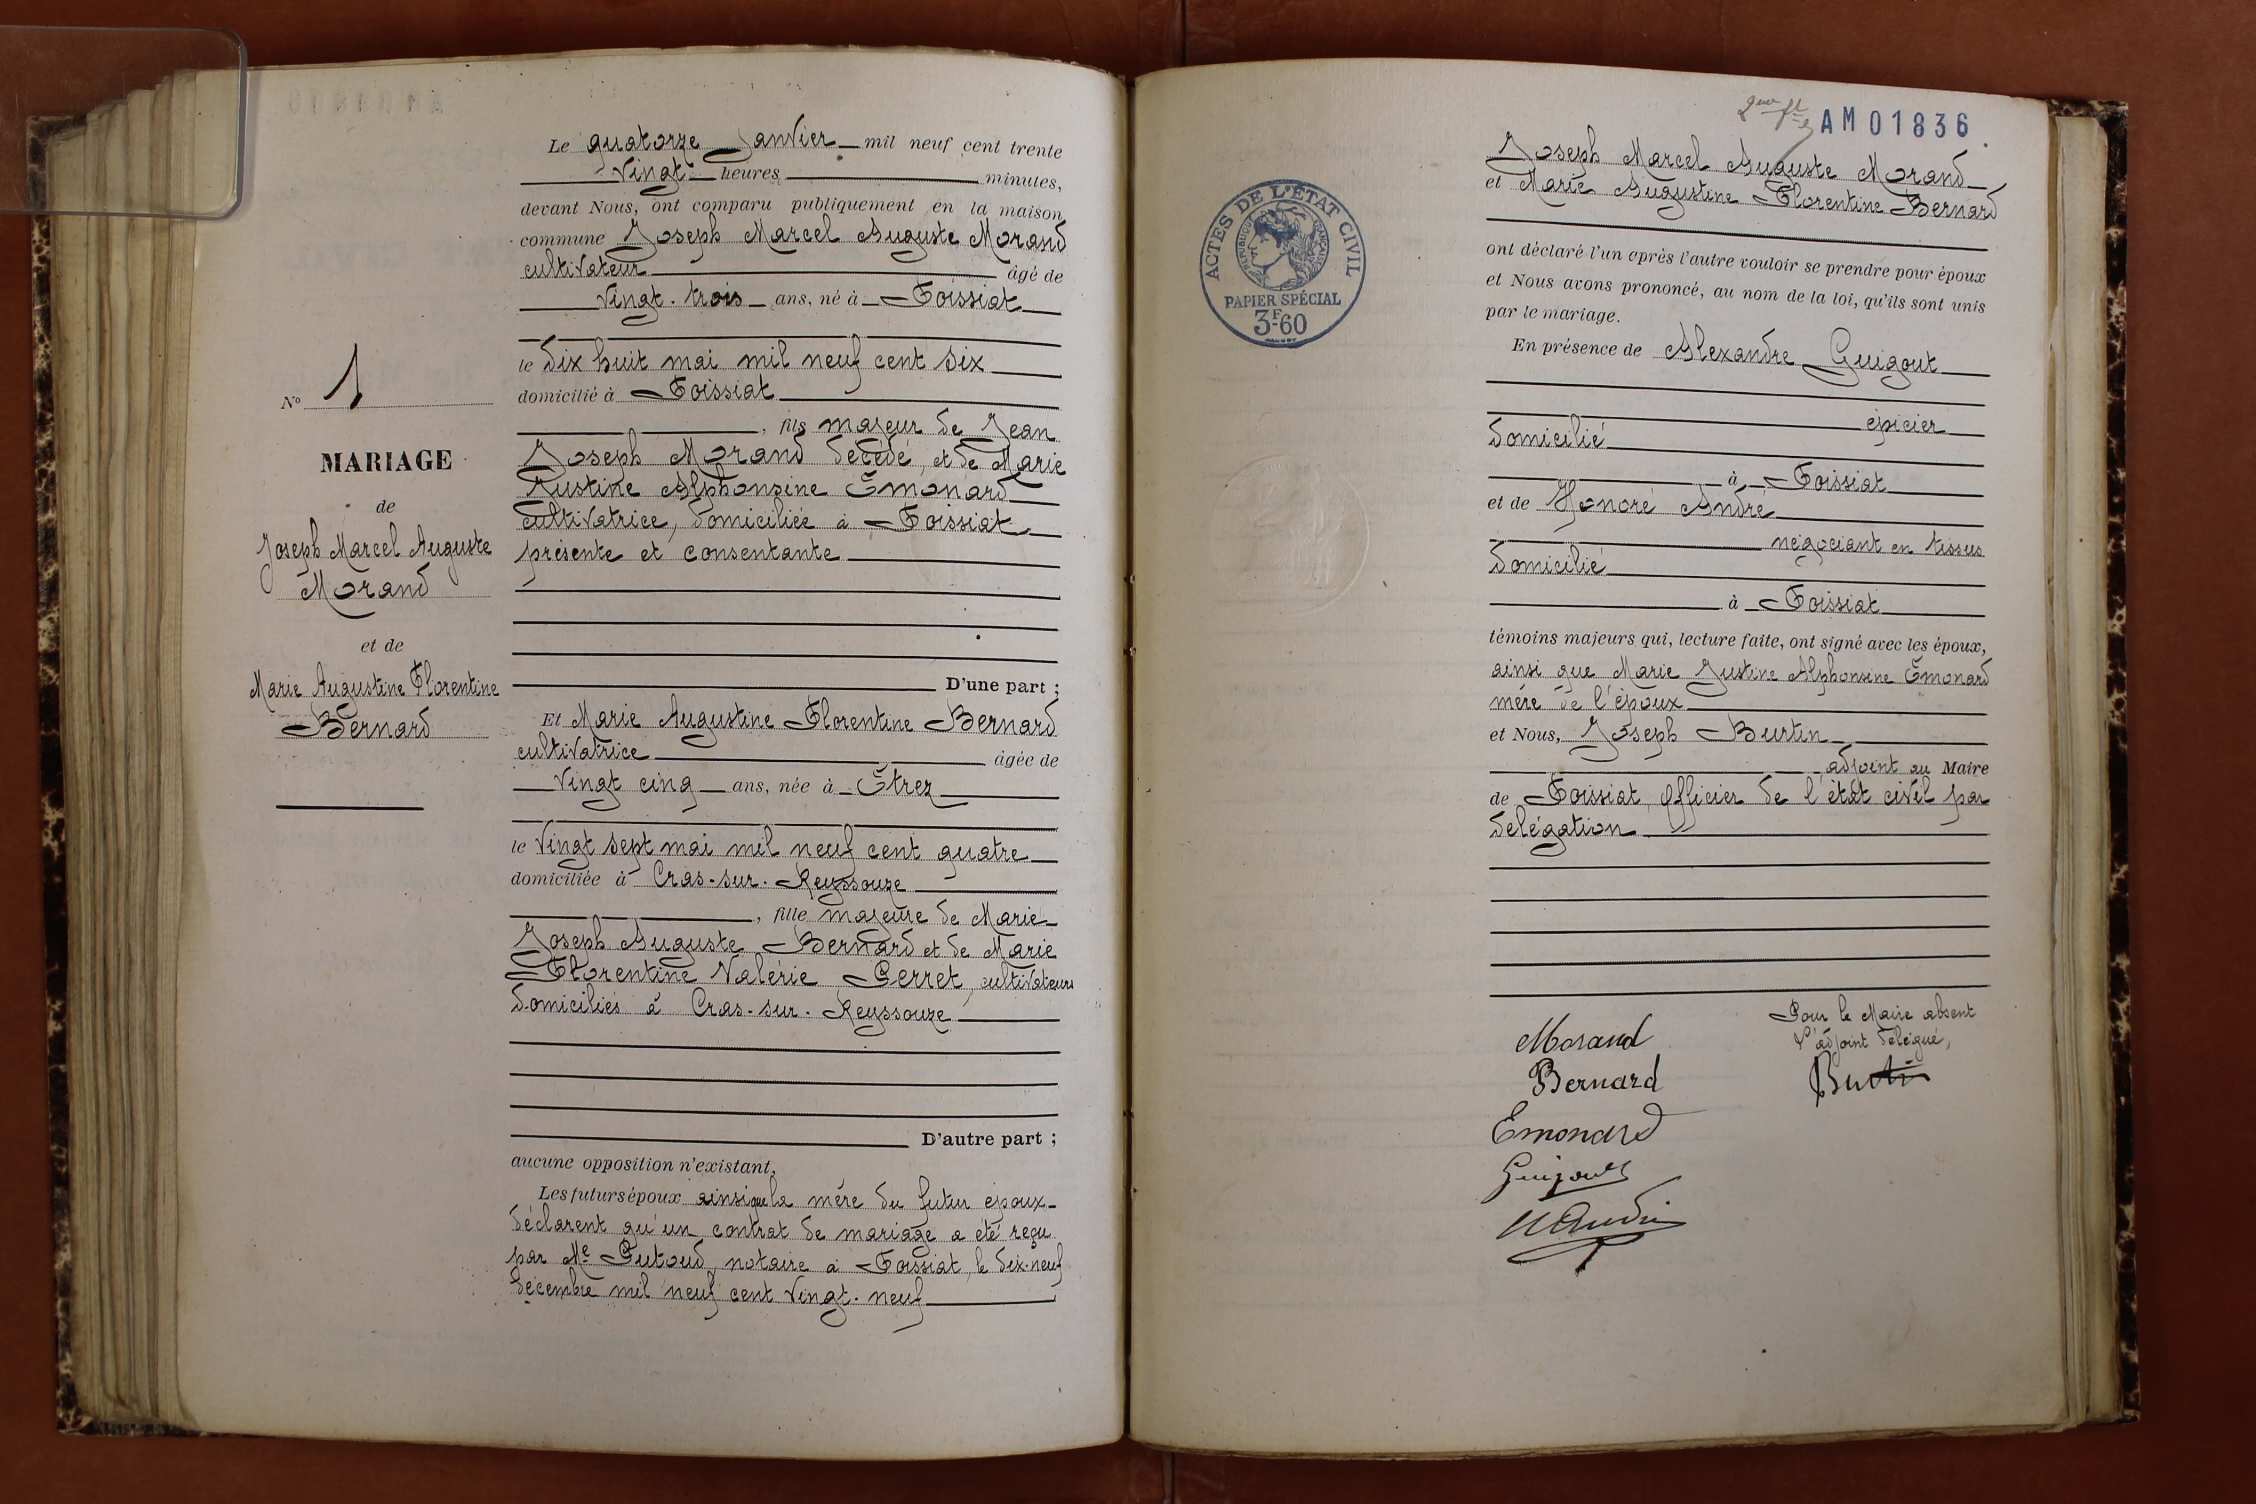 Le quatorze Janvier mil neuf cent trente
vingt heures minutes,
devant Nous, ont comparu publiquement en la maison
commune Joseph Marcel Auguste Morand
cultivateur âgé de
vingt-trois ans, né à Foissiat
le dix huit mai mil neuf cent six
domicilié à Foissiat
, fils majeur de Jean
Joseph Morand décédé, et de Marie
Justine Alphonsine Émonard
cultivatrice, domiciliée à Foissiat
présente et consentante
D'une part ;
Et Marie Augustine Florentine Bernard
cultivatrice âgée de
vingt cinq ans, née à Étrez
le vingt sept mai mil neuf cent quatre
domiciliée à Cras-sur-Reyssouze
, fille majeure de Marie
Joseph Auguste Bernard et de Marie
Florentine Valérie Perret, cultivateurs
domiciliés à Cras-sur-Reyssouze
D'autre part ;
aucune opposition n'existant,
Les futurs époux ainsi que la mère du futur époux
déclarent qu'un contrat de mariage a été reçu
par Me Putoud, notaire à Foissiat, le dix-neuf
décembre mil neuf cent vingt-neuf
No 1
MARIAGE
de
Joseph Marcel Auguste
Morand
et de
Marie Augustine Florentine
Bernard
AM01836
Joseph Marcel Auguste Morand
et Marie Augustine Florentine Bernard
ont déclaré l'un après l'autre vouloir se prendre pour époux
et Nous avons prononcé, au nom de la loi, qu'ils sont unis
par le mariage.
En présence de Alexandre Guigout
épicier
domicilié
à Foissiat
et de Honoré André
négociant en tissus
domicilié
à Foissiat
témoins majeurs qui, lecture faite, ont signé avec les époux,
ainsi que Marie Justine Alphonsine Émonard
mère de l'époux
et Nous, Joseph Burtin
adjoint au Maire
de Foissiat, officier de l'état civil par
délégation
Morand
Bernard
Emonard
Guigout
Pour le Maire absent
L'adjoint délégué,
Burtin
ACTES DE L'ETAT CIVIL
REPUBLIQUE FRANÇAISE
PAPIER SPÉCIAL
3F60